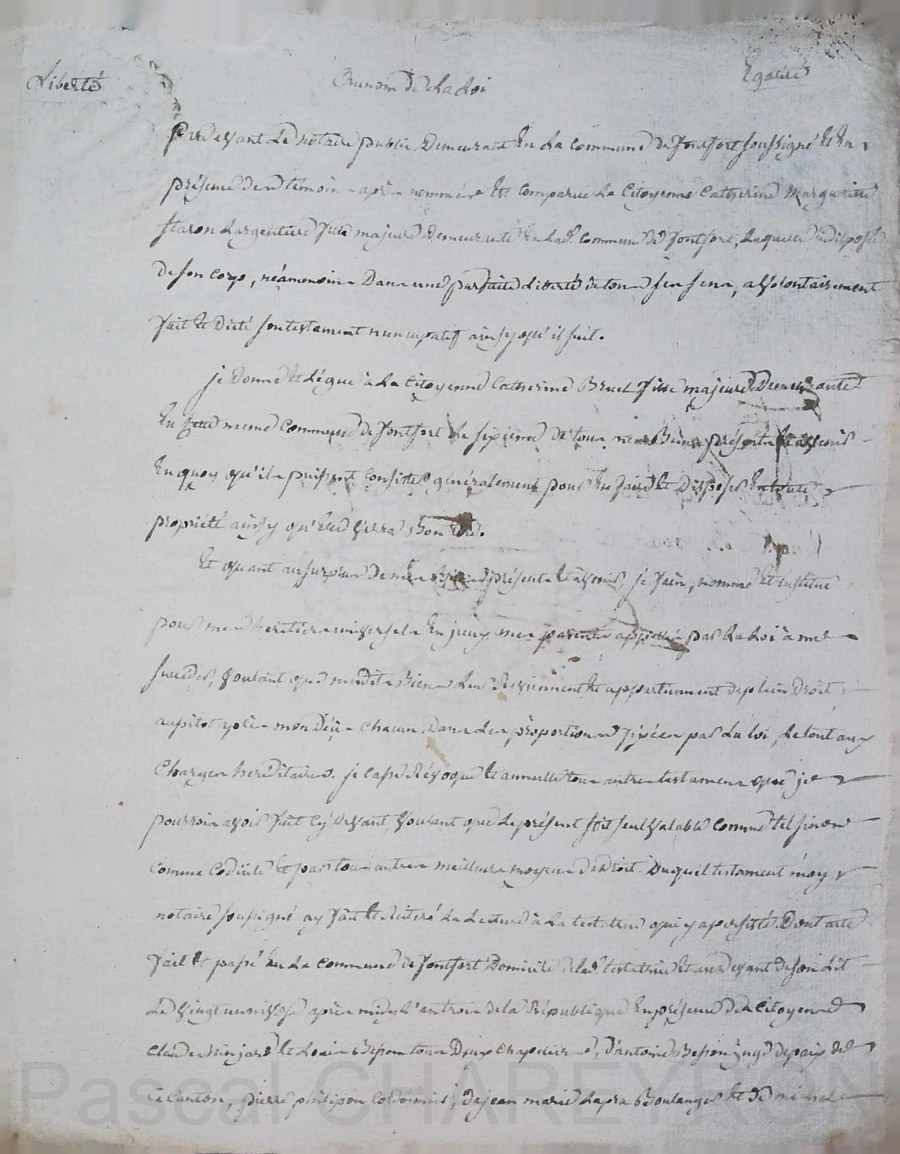 Liberté Au nom de la Loi Egalité
Pardevant Le notaire public Demeurant En La Commune de Fontfort soussigné Et En
présence des temoins après nommés Est Comparue La Citoyenne Catherine Marguerite
Staron Largentiere fille majeure Demeurante En Lad. Commune de Fontfort, Laquelle indisposée
de son corps, néamoins Dans une parfaite Liberté de tous ses sens, a volontairement
fait Et Dicté son testament nuncupatif ainsy qu'il suit.
je Donne Et Legue à La Citoyenne Catherine Bruel fille majeure Demeurante
En Cette meme Commune de Fontfort Le sixieme de tous mes Biens présents Et avenir
En quoy qu'ils puissent Consister généralement pour En jouir Et Disposer En toute
propriété ainsy qu'Elle verra Bon Etre.
Et quant au surplus De mes Biens présents Et avenir, je fais, nomme Et institue
pour mes heretiers universels Eu juny mes parents appellés par La Loi à me
succeder, voulant que mesdits Biens Leur Reviennent Et appartiennent de plein Droit
aussitot après mon Décès Chacun Dans Les proportions fixées par La Loi, Le tout aux
Charges hereditaires. je Casse Révoque Et annulle tous autres testaments que je
pourrois avoir fait Cy devant, voulant que Le présent soit seul valable Comme tel sinon
Comme Codicile Et par tous autres meilleurs moyens de Droit. Duquel testament moy
notaire soussigné ay fait Et Réitéré La Lecture à La testatrice qui y a persisté. Dont acte
fait Et passé En La Commune de Fontfort Domicile de lad. testatrice Et au devant de son Lit
Le vingt un nivose après midy L'an trois de la République En présence des Citoyens
Claude Et Louis Besson tous Deux Chapeliers, d'antoine Besson juge de paix de
Ce Canton, pierre philipon Cordonnier, de jean marie Lapra Boulanger Et de michel
Pascal CHAREYRON